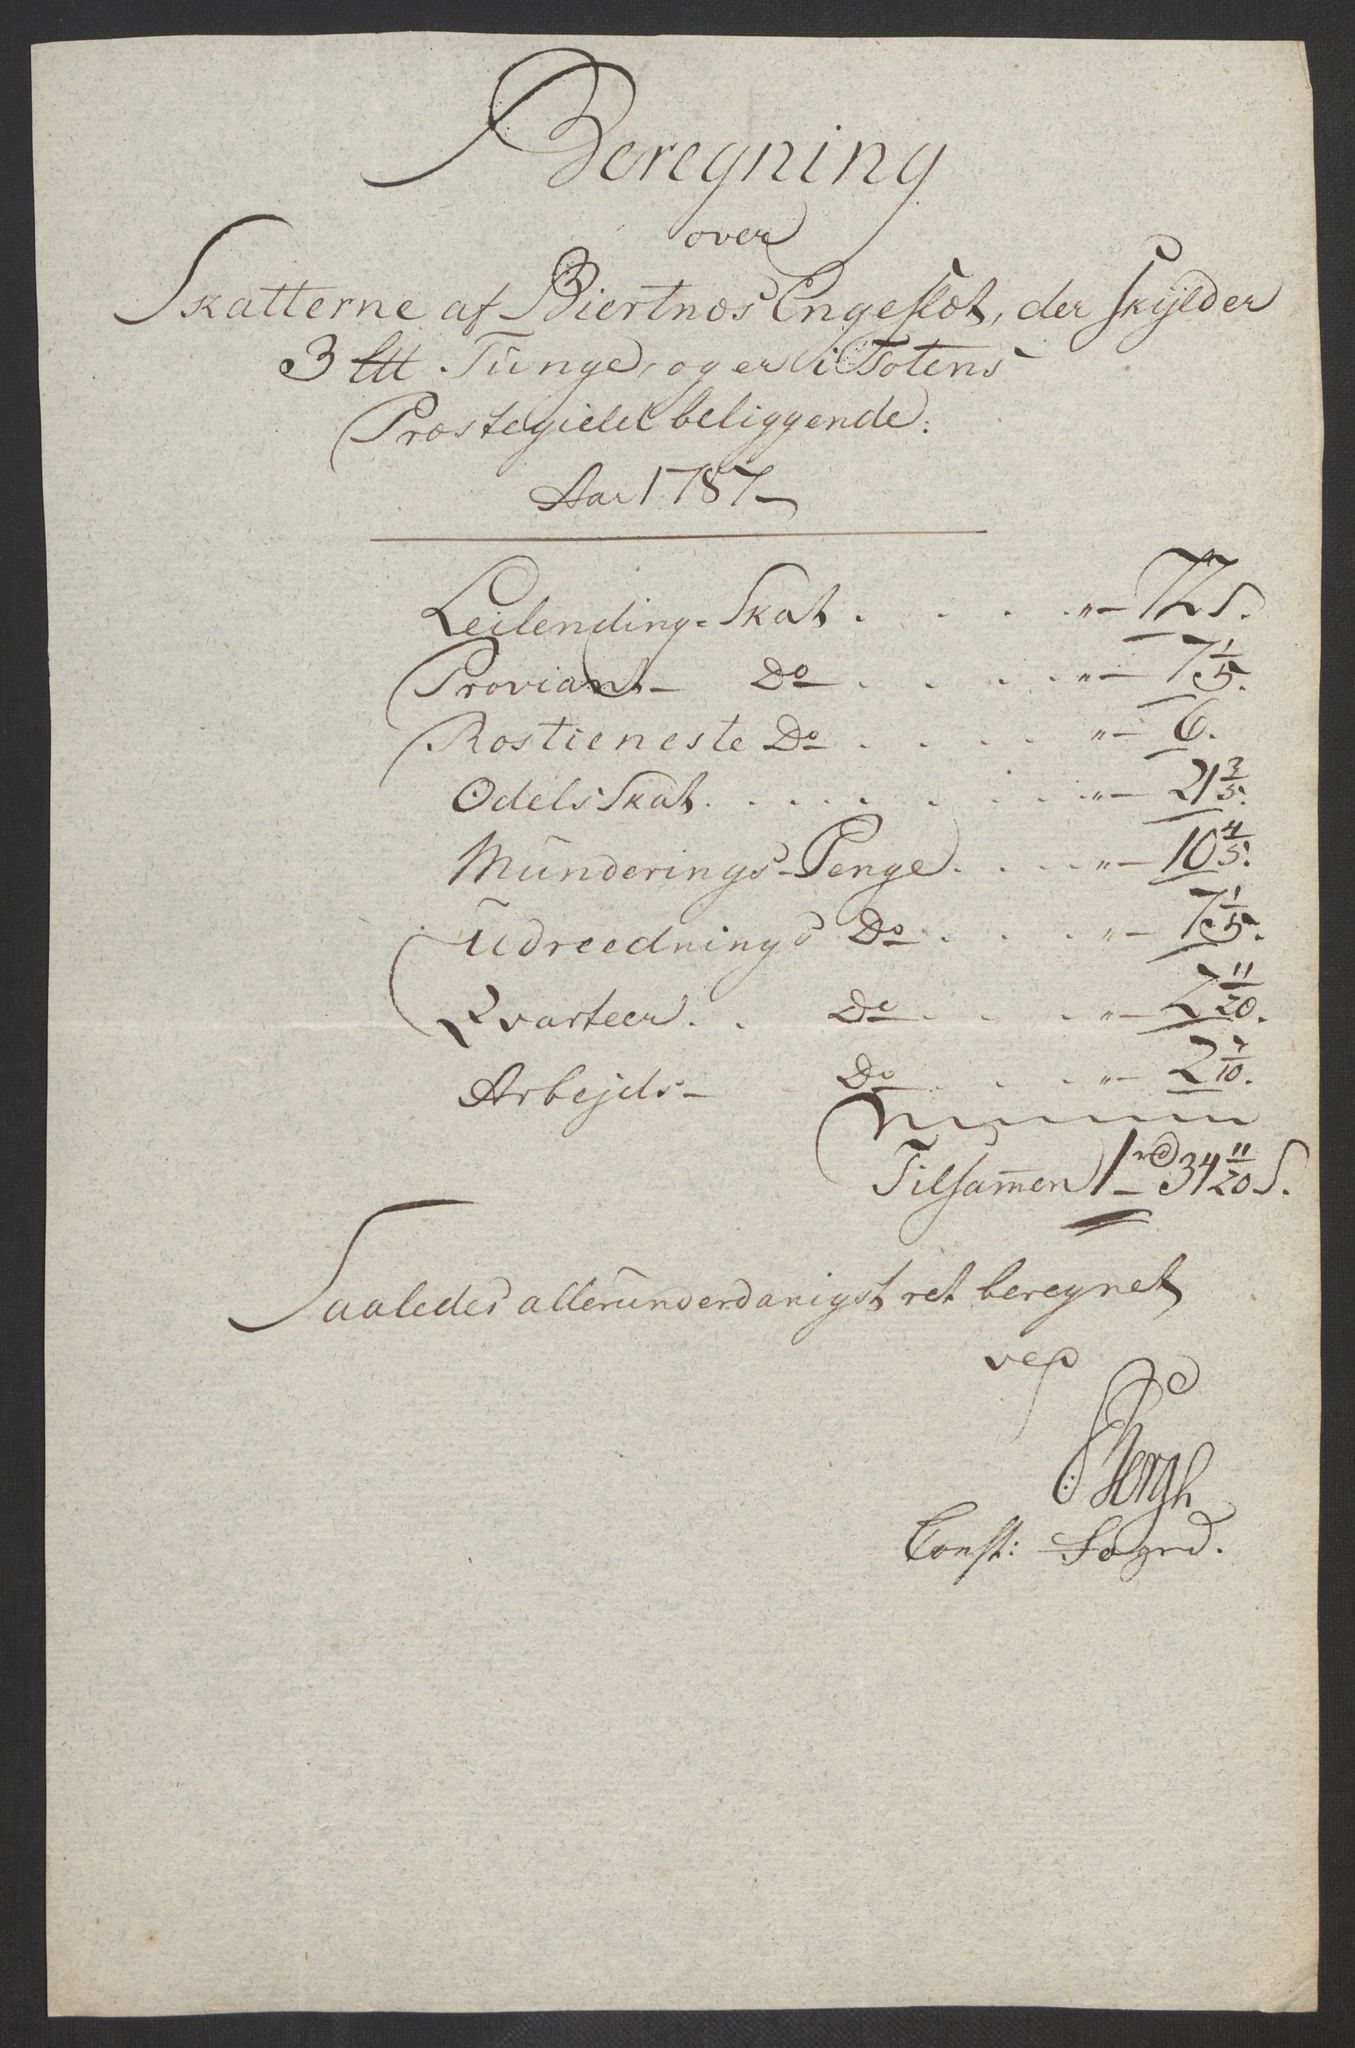 Beregning
over
Skatterne af Biertnæs Engeslæt, der skylder
3 Ltt Tunge, og er i Totens
Præstegield beliggende.
Aar 1787
Leilending-Skat . . . . „ — 72 s.
Proviant- Do . . . . „ — 7 1/5.
Rostieneste Do . . . . „ — 6.
Odels Skat . . . . . . . „ — 21 3/5.
Munderings-Penge . . . „ — 10 4/5.
Udreednings Do . . . „ — 7 1/5.
Qvarteer . . Do . . . „ — 7 11/20.
Arbejds- Do . . . „ — 2 7/10.
Tilsamen 1 rd 34 11/20 s.
Saaledes allerunderdanigst ret beregnet
af
Bergh
Const: Foged.